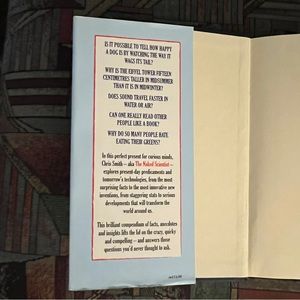 IS IT POSSIBLE TO TELL HOW HAPPY
A DOG IS BY WATCHING THE WAY IT
WAGS ITS TAIL?
WHY IS THE EIFFEL TOWER FIFTEEN
CENTIMETRES TALLER IN MIDSUMMER
THAN IT IS IN MIDWINTER?
DOES SOUND TRAVEL FASTER IN
WATER OR AIR?
CAN ONE REALLY READ OTHER
PEOPLE LIKE A BOOK?
WHY DO SO MANY PEOPLE HATE
EATING THEIR GREENS?
In this perfect present for curious minds,
Chris Smith – aka The Naked Scientist –
explores present-day predicaments and
tomorrow's technologies, from the most
surprising facts to the most innovative new
inventions, from staggering stats to serious
developments that will transform the
world around us.
This brilliant compendium of facts, anecdotes
and insights lifts the lid on the crazy, quirky
and compelling – and answers those
questions you'd never thought to ask.